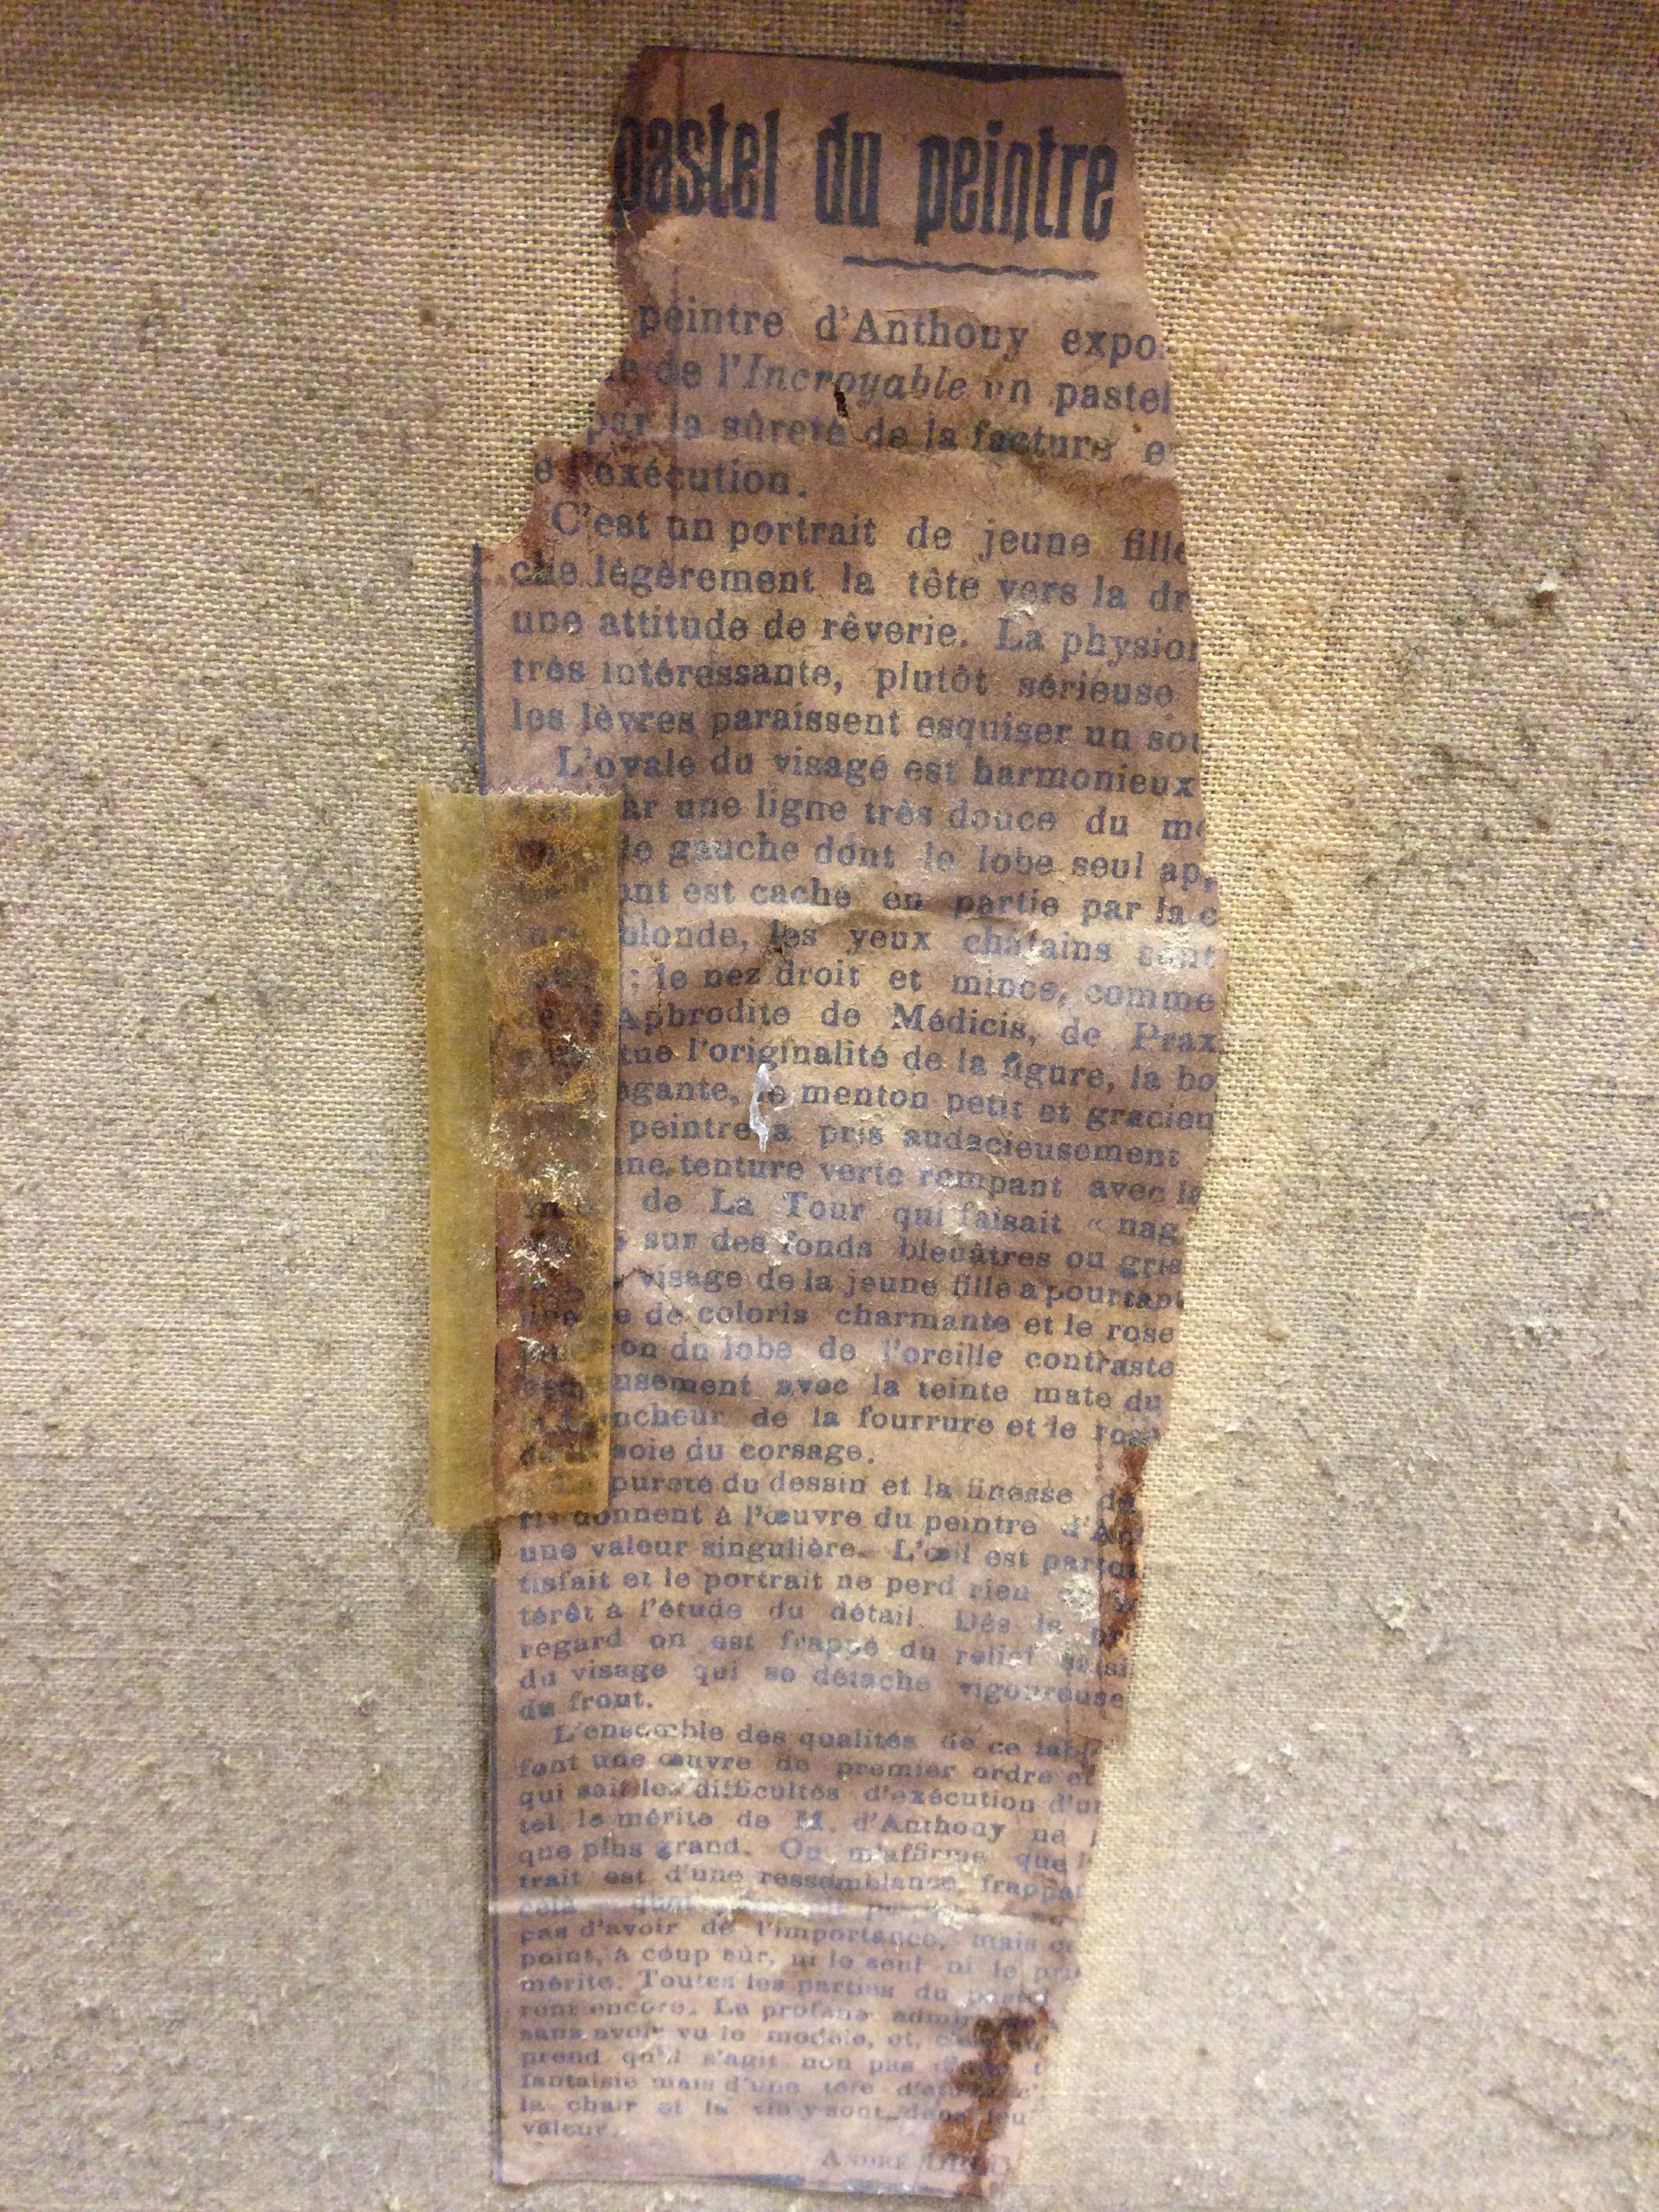 pastel du peintre
peintre d'Anthony expo
de l'Incroyable un pastel
par la sûreté de la facture e
e l'exécution.
C'est un portrait de jeune fille
che légèrement la tête vers la dr
une attitude de rêverie. La physion
très intéressante, plutôt sérieuse
les lèvres paraissent esquiser un sou
L'ovale du visage est harmonieux
ar une ligne très douce du me
le gauche dont le lobe seul ap
ont est caché en partie par la c
blonde, les yeux châtains sont
: le nez droit et mince, comme
de l'Aphrodite de Médicis, de Prax
tue l'originalité de la figure, la bo
égante, le menton petit et gracieu
peintre a pris audacieusement
une tenture verte rompant avec la
de La Tour qui faisait « nag
sur des fonds bleuâtres ou gris
visage de la jeune fille a pourtant
fine e de coloris charmante et le rose
on du lobe de l'oreille contraste
usement avec la teinte mate du
la blancheur de la fourrure et le rose
de la soie du corsage.
La pureté du dessin et la finesse de
ris donnent à l'œuvre du peintre d'An
une valeur singulière. L'œil est partou
tisfait et le portrait ne perd rien
térêt à l'étude du détail. Dès le pr
regard on est frappé du relief saisi
du visage qui se détache vigoureuse
du front.
L'ensemble des qualités de ce tabl
font une œuvre de premier ordre et
qui sait les difficultés d'exécution d'un
tel le mérite de M. d'Anthony ne
que plus grand. On m'affirme que l
trait est d'une ressemblance frappa
cela
pas d'avoir de l'importance, mais ce
point, à coup sûr, ni le seul ni le pri
mérite. Toutes les parties du pastel
rent encore. Le profane admir
sans avoir vu le modèle, et,
prend qu'il s'agit non pas
fantaisie mais d'une tête d'étu
la chair et la vie y sont dans
valeur.
ANDRÉ